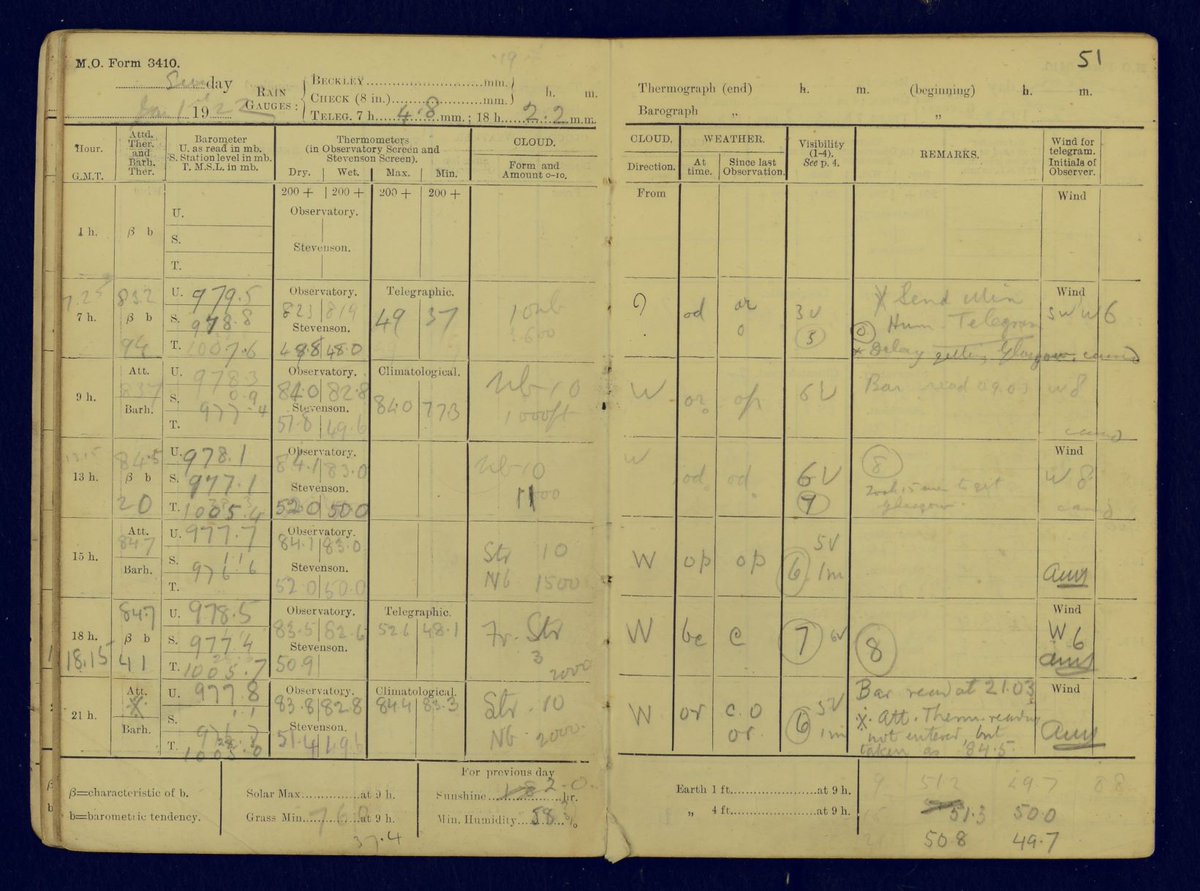 M.O. Form 3410.
Sunday
Jan 1st 1922
RAIN GAUGES:
BECKLEY mm.
CHECK (8 in.) mm.
TELEG. 7 h. 4.8 mm.; 18 h. 2.2 m.m.
h. m.
Hour.
G.M.T.
Attd. Ther. and Barh. Ther.
Barometer
U. as read in mb.
S. Station level in mb.
T. M.S.L. in mb.
Thermometers
(in Observatory Screen and
Stevenson Screen).
Dry. Wet. Max. Min.
CLOUD.
Form and
Amount 0-10.
200 + 200 + 200 + 200 +
1 h. β b
U.
S.
T.
Observatory.
Stevenson.
7.25
7 h. 832 β b 94
U. 979.5
S. 978.8
T. 1007.6
Observatory. Telegraphic.
823 819
Stevenson. 49 37
49.8 48.0
10 nb
600
9 h. Att. 837 Barh.
U. 978.3
S. 0.9
977.4
T.
Observatory. Climatological.
84.0 82.8
Stevenson. 840 773
51.8 49.6
Nb-10
1000ft
13.15
13 h. 84.5 β b 20
U. 978.1
S. 977.1
T. 1005.4
Observatory.
84.1 83.0
Stevenson.
52.0 50.0
Nb-10
15 h. Att. 847 Barh.
U. 977.7
S. 1.1
976.6
T.
Observatory.
84.1 83.0
Stevenson.
52.0 50.0
Str 10
Nb 1500
18 h. 847 β b
18.15 41
U. 978.5
S. 977.4
T. 1005.7
Observatory. Telegraphic.
83.5 82.6 526 48.1
Stevenson.
50.91
Fr. Str
3
2000
21 h. Att. X Barh.
U. 977.8
S. 1.1
T.
Observatory. Climatological.
83.8 82.8 844 83.3
Stevenson.
51.4 49.6
Str. 10
Nb 2000
β=characteristic of b.
b=barometric tendency.
Solar Max at 9 h.
Grass Min. at 9 h.
37.4
For previous day
Sunshine 2.0 hr.
Min. Humidity 58 %
51
Thermograph (end) h. m. (beginning) h. m.
Barograph " "
CLOUD.
Direction.
WEATHER.
At time.
Since last Observation.
Visibility
(1-4).
See p. 4.
REMARKS.
Wind for
telegram.
Initials of
Observer.
From
Wind
? od or o 3V 3
X Send Min
Hum. Telegram
* Delay getting Glasgow.
Wind
SWW6
W or op 6V
Bar read 09.03
W8
W od od 6V 9
8
took 15 min to get
Glasgow
Wind
W 8
W op op 5V 6 1m
Wind
W bc c 7 6V
8
W 6
W or c.o or. 5V 6 1m
Bar read at 21.03
X. Att. Therm. reading
not entered, but
taken as '84.5.
Wind
Earth 1 ft. at 9 h.
" 4 ft. at 9 h.
9 51.2 49.7 88
51.3 50.0
50.8 49.7